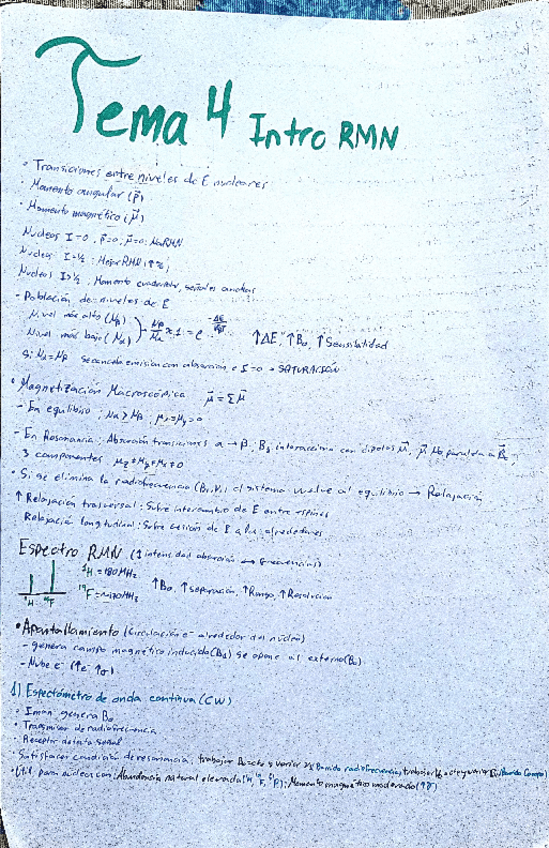 Tema 4 Intro RMN
• Transiciones entre niveles de E nucleares
• Momento angular (p⃗)
• Momento magnético (μ⃗)
Nucleos I=0, p⃗=0, μ⃗=0: No RMN
Nucleos I=½: Mejor RMN,
Nucleos I>½: Momento
- Población de niveles de E
Nivel más alto (Nβ)
Nivel más bajo (Nα)
Nβ/Nα ≈ 1 = e^-ΔE/
↑ΔE, ↑B₀, ↑Sensibilidad
Si Nα=Nβ Se cancela emisión con absorción, I=0 → SATURACIÓN
• Magnetización Macroscópica
- En equilibrio; Nα > Nβ,
- En Resonancia: Absorción transiciones α→β, B₁ interacciona con dipolos
3 componentes
• Si se elimina la radiofrecuencia el sistema vuelve al equilibrio → Relajación
Relajación trasversal: Sufre intercambio de E entre espines
Relajación longitudinal: Sufre cesión de E a los alrededores
Espectro RMN (↑ intensidad absorción ↔ frecuencias)
¹H = 180MHz
¹⁹F
↑B₀, ↑separación, ↑Rango, ↑Resolución
¹H ¹⁹F
• Apantallamiento (Circulación e⁻ alrededor del núcleo)
- genera campo magnético inducido se opone al externo (B₀)
- Nube e⁻ (↑e⁻ ↑σ)
1) Espectómetro de onda continua (CW)
• Imán genera B₀
• Transmisor de radiofrecuencia
• Receptor detecta señal
• Satisfacer condición de resonancia, trabajar B₀ cte y variar Barrido radiofrecuencias, trabajar cte y variar Barrido Campo)
• Útil para núcleos con: Abundancia natural elevada (¹H, ¹⁹F, ³¹P); Momento magnético moderado